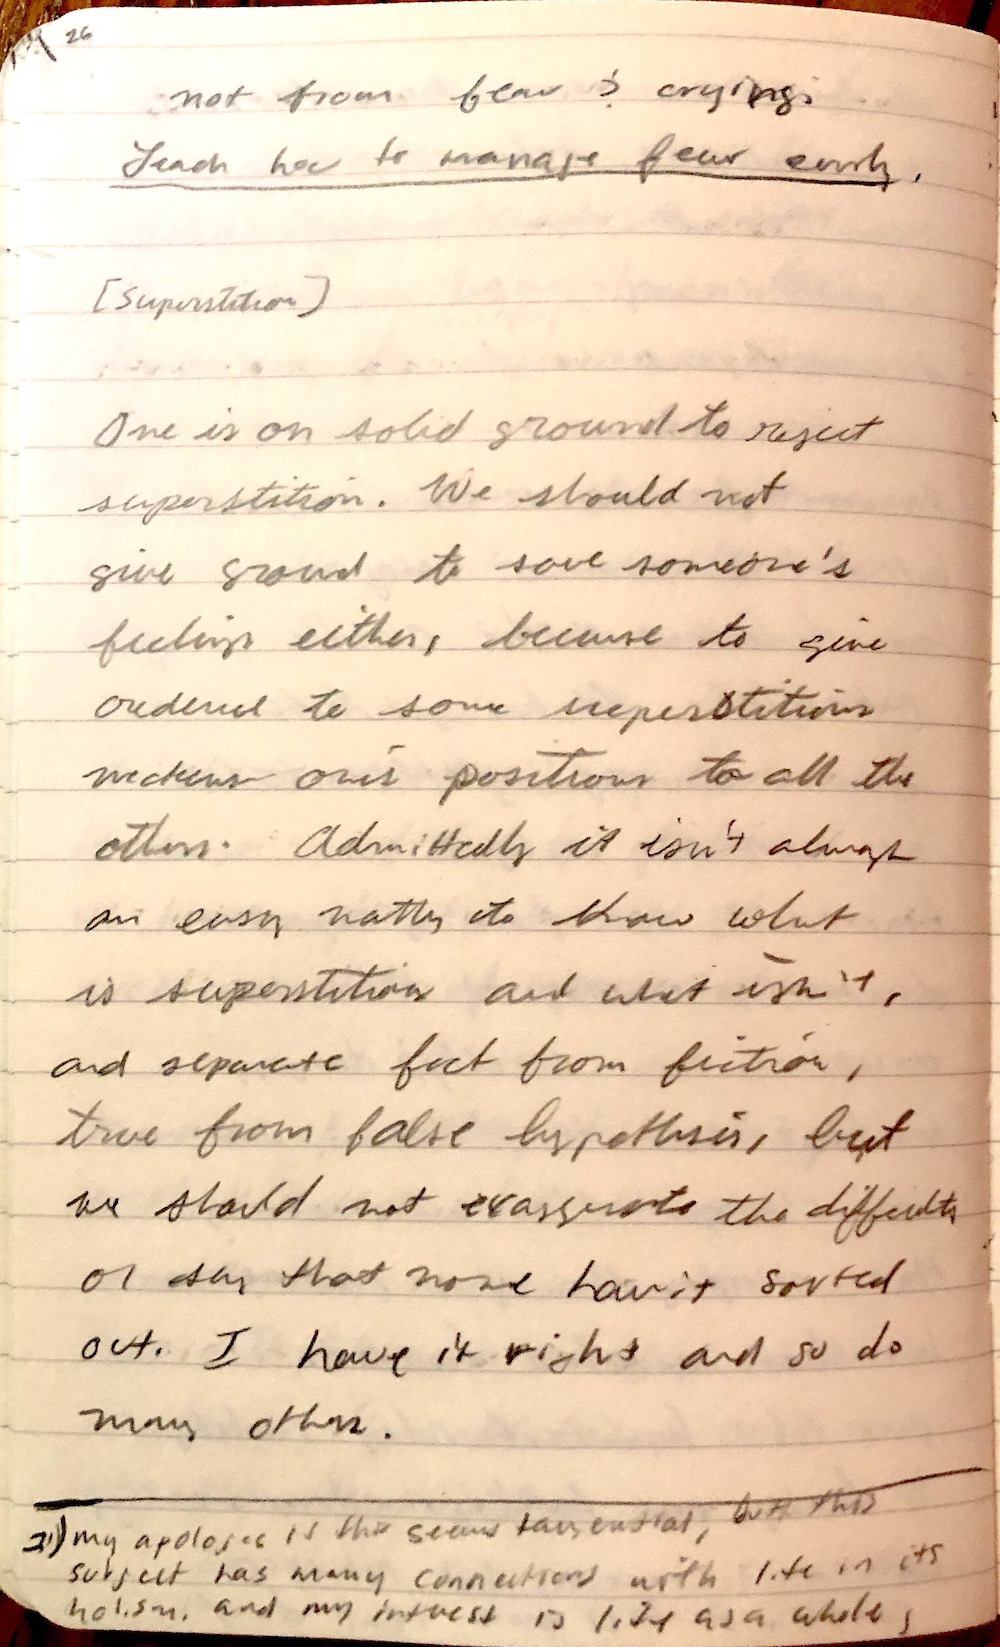 26
not from fear & crying.
Teach how to manage fear early.
[Superstition]
One is on solid ground to reject
superstition. We should not
give ground to save someone's
feelings either, because to give
credence to some superstitions
weakens one's positions to all the
others. Admittedly it isn't always
an easy matter to know what
is superstition and what isn't,
and separate fact from fiction,
true from false hypothesis, but
we should not exaggerate the difficulty
or say that none have it sorted
out. I have it right and so do
many others.
my apologies if this seems tangential, but this
subject has many connections with life in its
holism, and my interest is life as a whole,